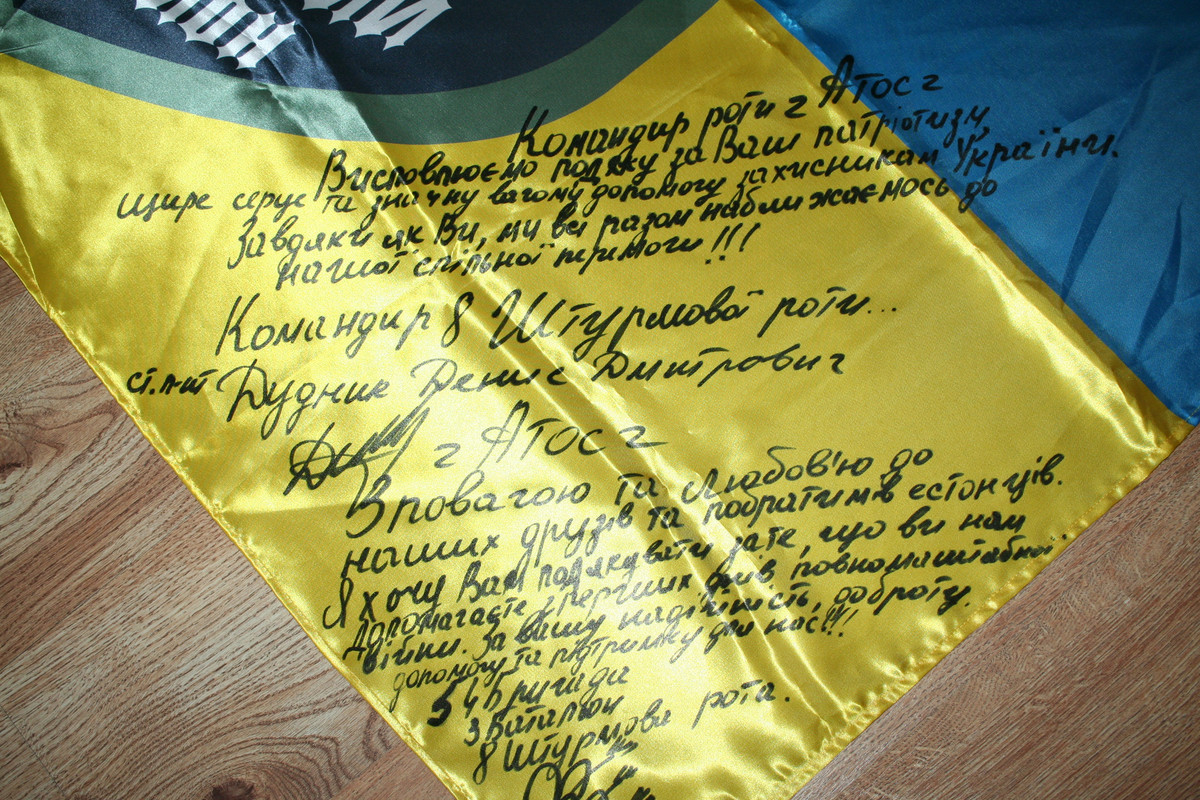 Командир роти г Атос г
Висловлюємо подяку за Ваш патріотизм,
щире серце та значну вагому допомогу захисникам України.
Завдяки як Ви, ми всі разом наближаємось до
нашої спільної перемоги!!!
Командир 8 Штурмової роти...
ст.л-т Дудник Денис Дмитрович
г Атос г
З повагою та любов'ю до
наших друзів та побратимів естонців.
Я хочу Вам подякувати за те, що ви нам
допомагаєте з перших днів повномаштабної
війни. За вашу надійність, доброту,
допомогу та підтримку для нас!!!
54 бригада
3 Батальон
8 Штурмова рота.